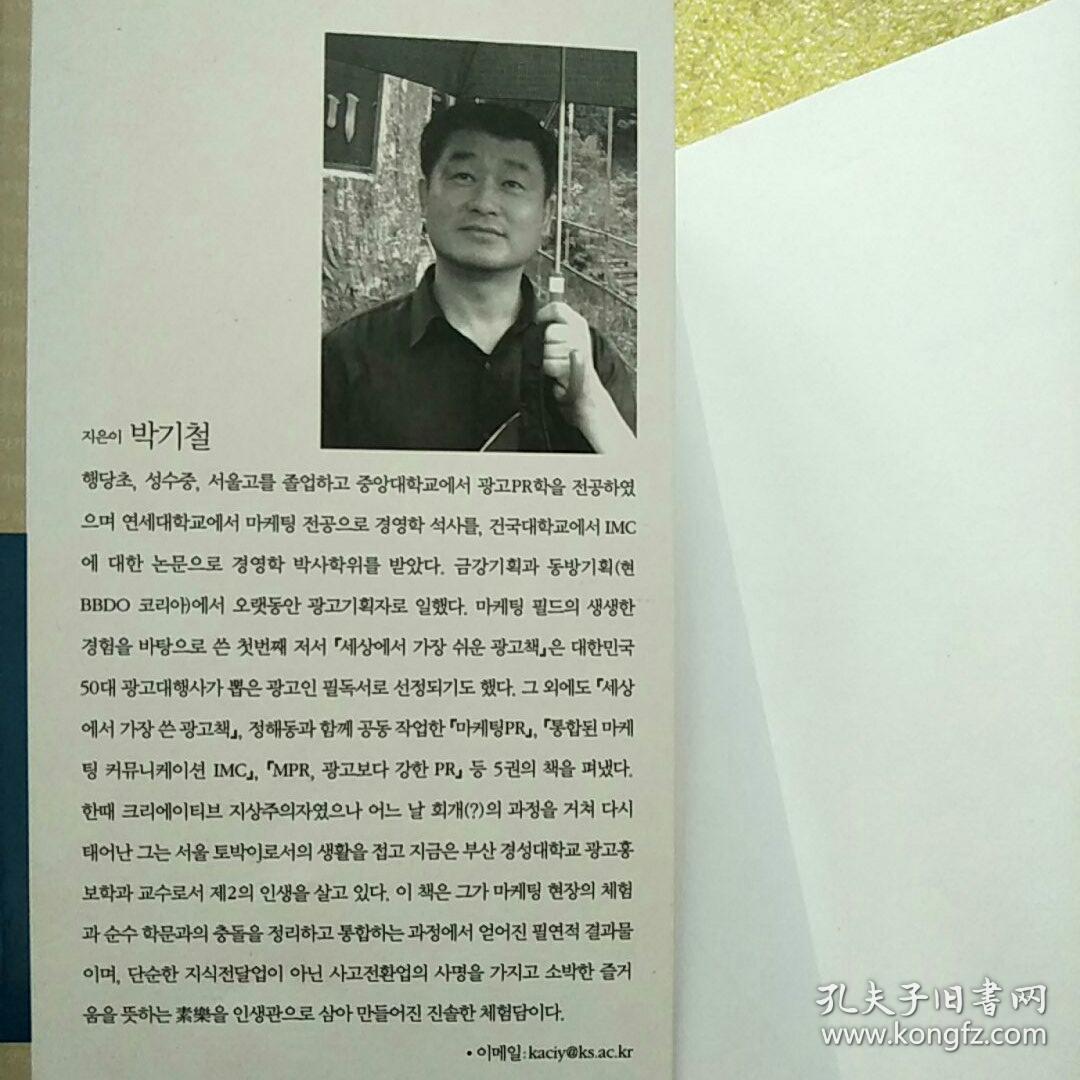 지은이 박기철
행당초, 성수중, 서울고를 졸업하고 중앙대학교에서 광고PR학을 전공하였
으며 연세대학교에서 마케팅 전공으로 경영학 석사를, 건국대학교에서 IMC
에 대한 논문으로 경영학 박사학위를 받았다. 금강기획과 동방기획(현
BBDO 코리아)에서 오랫동안 광고기획자로 일했다. 마케팅 필드의 생생한
경험을 바탕으로 쓴 첫번째 저서 『세상에서 가장 쉬운 광고책』은 대한민국
50대 광고대행사가 뽑은 광고인 필독서로 선정되기도 했다. 그 외에도 『세상
에서 가장 쓴 광고책』, 정해동과 함께 공동 작업한 『마케팅PR』, 『통합된 마케
팅 커뮤니케이션 IMC』, 『MPR, 광고보다 강한 PR』 등 5권의 책을 펴냈다.
한때 크리에이티브 지상주의자였으나 어느 날 회개(?)의 과정을 거쳐 다시
태어난 그는 서울 토박이로서의 생활을 접고 지금은 부산 경성대학교 광고홍
보학과 교수로서 제2의 인생을 살고 있다. 이 책은 그가 마케팅 현장의 체험
과 순수 학문과의 충돌을 정리하고 통합하는 과정에서 얻어진 필연적 결과물
이며, 단순한 지식전달업이 아닌 사고전환업의 사명을 가지고 소박한 즐거
움을 뜻하는 素樂을 인생관으로 삼아 만들어진 진솔한 체험담이다.
• 이메일:kaciy@ks.ac.kr
孔夫子旧书网
www.kongfz.com